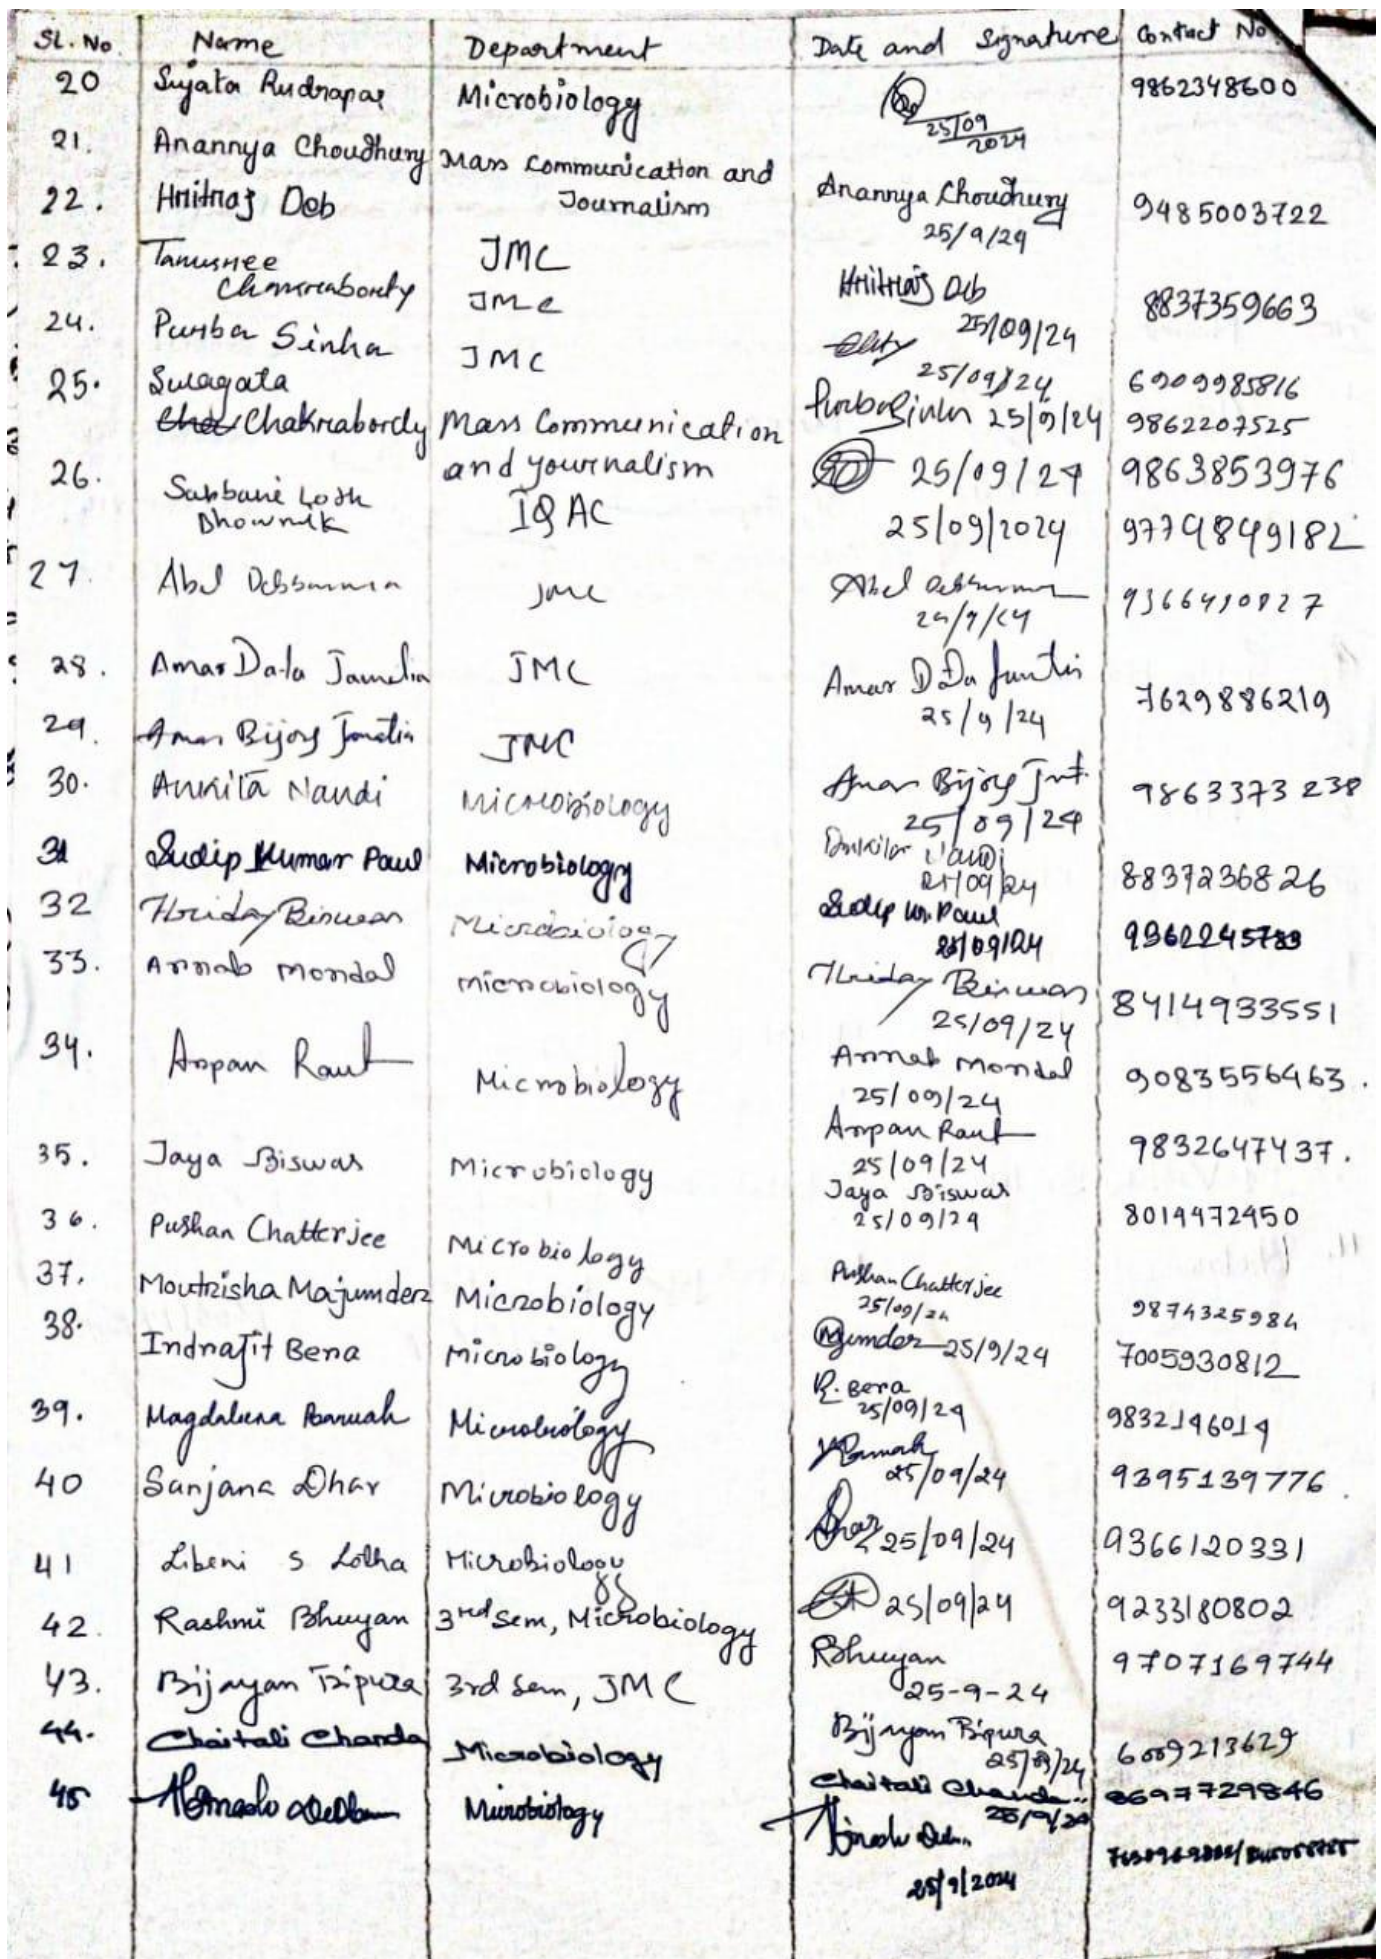 Sl. No. Name Department Date and Signature Contact No.
20 Sujata Rudrapal Microbiology 9862348600
25/09
2024
21. Anannya Choudhury Mass Communication and
Journalism Anannya Choudhury 9485003722
25/9/24
22. Hritraj Deb JMC Hritraj Deb 8837359663
25/09/24
23. Tanusree
Chakraborty JMC 25/09/24 6909985816
24. Purba Sinha JMC Purba Sinha 25/9/24 9862207525
25. Swagata
Chakraborty Mass Communication
and Journalism 25/09/24 9863853976
26. Bhowmik IQAC 25/09/2024
27. Abel Debbarma JMC Abel Debbarma
28. Amar Data Jamatia JMC Amar 7629886219
25/9/24
29. Amar Bijoy Jamatia JMC Amar Bijoy Jmt. 9863373238
25/09/24
30. Ankita Nandi Microbiology Ankita Nandi 8837236826
25/09/24
31 Sudip Kumar Paul Microbiology Sudip Kr. Paul
25/09/24
32 Hriday Biswas Microbiology Hriday Biswas 8414933551
25/09/24
33. Arnab Mondal Microbiology Arnab Mondal 9083556463.
25/09/24
34. Arpan Raut Microbiology Arpan Raut 9832647437.
25/09/24
35. Jaya Biswas Microbiology Jaya Biswas 8014472450
25/09/24
36. Pushan Chatterjee Microbiology Pushan Chatterjee 9874325984
25/09/24
37. Moutrisha Majumder Microbiology 25/9/24 7005930812
38. Indrajit Bera Microbiology Bera 9832146014
25/09/24
39. Magdalena Baruah Microbiology Baruah 9395139776
25/09/24
40 Sanjana Dhar Microbiology Dhar 25/09/24 9366120331
41 Libeni S Lotha Microbiology 25/09/24 9233180802
42. Rashmi Bhuyan 3rd Sem, Microbiology Bhuyan 9707169744
25-9-24
43. Bijayan Tripura 3rd Sem, JMC Bijayan Tripura 6009213629
25/09/24
44. Chaitali Chanda Microbiology Chaitali Chanda 8697729846
45 Microbiology
25/9/2024